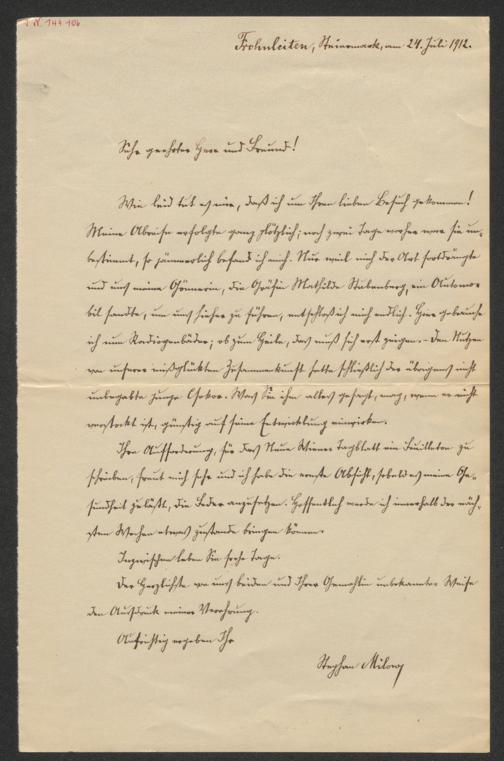 I.N. 144.106
Frohnleiten, Steiermark, am 24. Juli 1912.
Sehr geehrter Herr und Freund!
Wie leid tut es mir, daß ich um Ihren lieben Besuch gekommen!
Meine Abreise erfolgte ganz plötzlich; noch zwei Tage vorher war sie un-
bestimmt, so jämmerlich befand ich mich. Nur weil mich der Arzt fortdrängte
und uns meine Gönnerin, die Gräfin Mathilde Stubenberg, ein Automo-
bil sandte, um uns hieher zu führen, entschloß ich mich endlich. Hier gebrauche
ich nun Radiogenbäder; ob zum Heile, das muß sich erst zeigen. – Den Nutzen
von unserer mißglückten Zusammenkunft hatte schließlich der übrigens nicht
unbegabte junge Csokor. Was Sie ihm alles gesagt, mag, wenn er nicht
verstockt ist, günstig auf seine Entwicklung einwirken.
Ihre Aufforderung, für das Neue Wiener Tagblatt ein Feuilleton zu
schreiben, freut mich sehr und ich habe die ernste Absicht, sobald es meine Ge-
sundheit zuläßt, die Feder anzusetzen. Hoffentlich werde ich innerhalb der näch-
sten Wochen etwas zustande bringen können.
Inzwischen leben Sie frohe Tage.
Das Herzlichste von uns beiden und Ihrer Gemahlin unbekannter Weise
den Ausdruck meiner Verehrung.
Aufrichtig ergeben Ihr
Stephan Milow